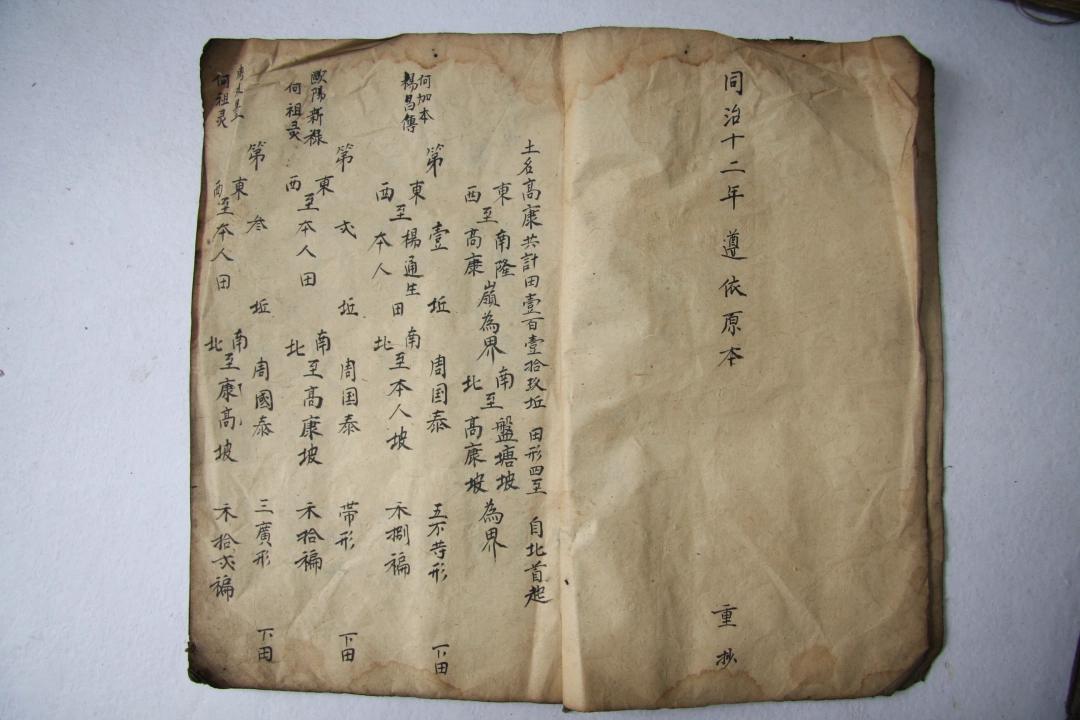 同治十二年遵依原本 重抄
土名高康共計田壹百壹拾玖坵 田形四至 自北首起
東西至南隆高康嶺為界 南北至盤塘坡高康坡為界
何加本
楊昌傳
第壹坵 周国泰 五不等形 下田
東西至楊通生本人田 南北至本人坡 禾捌褊
歐陽新祿
何祖灵
第弍坵 周国泰 帶形 下田
東西至本人田 南北至高康坡 禾拾褊
何祖灵
第叁坵 周國泰 三廣形 下田
東西至本人田 南北至康高坡 禾拾弍褊